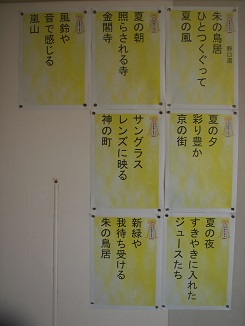 朱の鳥居
ひとつくぐって
夏の風
夏の朝
照らされる寺
金閣寺
風鈴や
音で感じる
嵐山
夏の夕
彩り豊か
京の街
サングラス
レンズに映る
神の町
夏の夜
すきやきに入れた
ジュースたち
新緑や
我待ち受ける
朱の鳥居